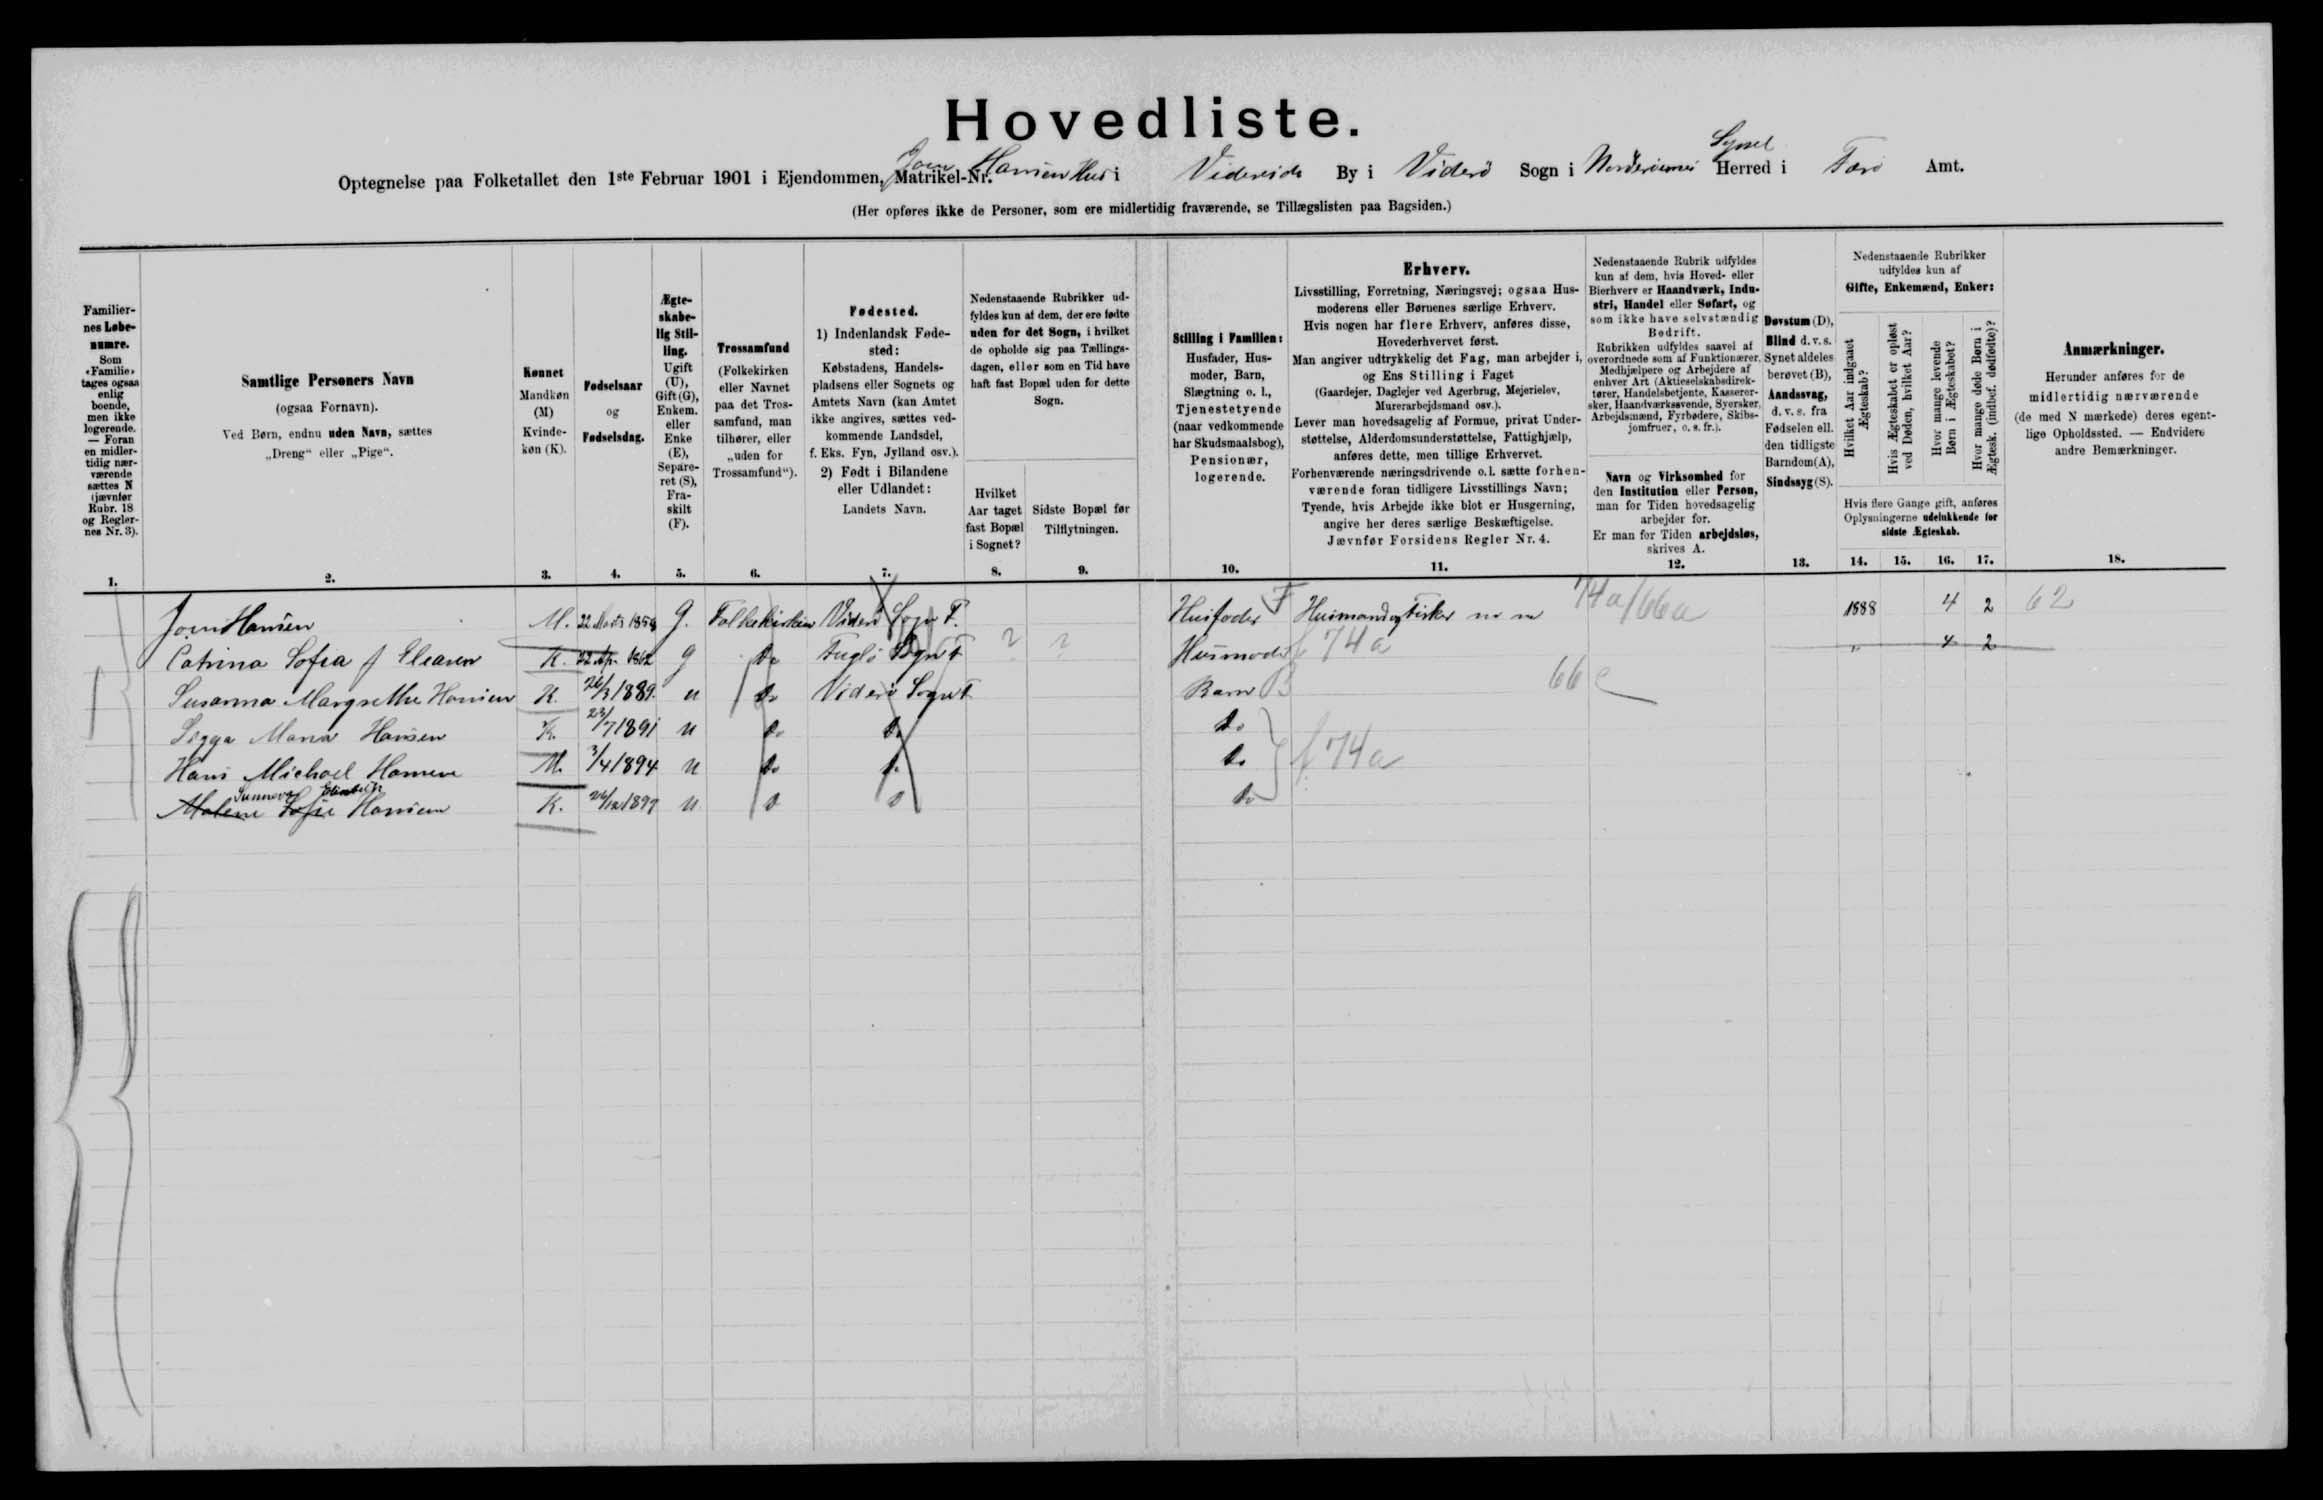 Hovedliste.
Sysel
Optegnelse paa Folketallet den 1ste Februar 1901 i Ejendommen, Matrikel-Nr. Joen Hansen Hus i Videreide By i Viderö Sogn i Norderöernes Herred i Færö Amt.
(Her opføres ikke de Personer, som ere midlertidig fraværende, se Tillægslisten paa Bagsiden.)
Familiernes Løbenumre.
Som «Familie» tages ogsaa enlig boende, men ikke logerende. — Foran en midlertidig nærværende sættes N (jævnfør Rubr. 18 og Reglernes Nr. 3).
1.
Samtlige Personers Navn
(ogsaa Fornavn).
Ved Børn, endnu uden Navn, sættes
„Dreng“ eller „Pige“.
2.
Kønnet
Mandkøn
(M)
Kvinde-
køn (K).
3.
Fødselsaar
og
Fødselsdag.
4.
Ægte-
skabe-
lig Stil-
ling.
Ugift
(U),
Gift (G),
Enkem.
eller
Enke
(E),
Separe-
ret (S),
Fra-
skilt
(F).
5.
Trossamfund
(Folkekirken
eller Navnet
paa det Tros-
samfund, man
tilhører, eller
„uden for
Trossamfund“).
6.
Fødested.
1) Indenlandsk Føde-
sted:
Købstadens, Handels-
pladsens eller Sognets og
Amtets Navn (kan Amtet
ikke angives, sættes ved-
kommende Landsdel,
f. Eks. Fyn, Jylland osv.).
2) Født i Bilandene
eller Udlandet:
Landets Navn.
7.
Nedenstaaende Rubrikker ud-
fyldes kun af dem, der ere fødte
uden for det Sogn, i hvilket
de opholde sig paa Tællings-
dagen, eller som en Tid have
haft fast Bopæl uden for dette
Sogn.
Hvilket
Aar taget
fast Bopæl
i Sognet?
8.
Sidste Bopæl før
Tilflytningen.
9.
Stilling i Familien:
Husfader, Hus-
moder, Barn,
Slægtning o. l.,
Tjenestetyende
(naar vedkommende
har Skudsmaalsbog),
Pensionær,
logerende.
10.
Erhverv.
Livsstilling, Forretning, Næringsvej; ogsaa Hus-
moderens eller Børnenes særlige Erhverv.
Hvis nogen har flere Erhverv, anføres disse,
Hovederhvervet først.
Man angiver udtrykkelig det Fag, man arbejder i,
og Ens Stilling i Faget
(Gaardejer, Daglejer ved Agerbrug, Mejerielev,
Murerarbejdsmand osv.).
Lever man hovedsagelig af Formue, privat Under-
støttelse, Alderdomsunderstøttelse, Fattighjælp,
anføres dette, men tillige Erhvervet.
Forhenværende næringsdrivende o. l. sætte forhen-
værende foran tidligere Livsstillings Navn;
Tyende, hvis Arbejde ikke blot er Husgerning,
angive her deres særlige Beskæftigelse.
Jævnfør Forsidens Regler Nr. 4.
11.
Nedenstaaende Rubrik udfyldes
kun af dem, hvis Hoved- eller
Bierhverv er Haandværk, Indu-
stri, Handel eller Søfart, og
som ikke have selvstændig
Bedrift.
Rubrikken udfyldes saavel af
overordnede som af Funktionærer,
Medhjælpere og Arbejdere af
enhver Art (Aktieselskabsdirek-
tører, Handelsbetjente, Kasserer-
sker, Haandværkssvende, Syersker,
Arbejdsmænd, Fyrbødere, Skibs-
jomfruer, o. s. fr.).
Navn og Virksomhed for
den Institution eller Person,
man for Tiden hovedsagelig
arbejder for.
Er man for Tiden arbejdsløs,
skrives A.
12.
Døvstum (D),
Blind d. v. s.
Synet aldeles
berøvet (B),
Aandssvag,
d. v. s. fra
Fødselen ell.
den tidligste
Barndom (A),
Sindssyg (S).
13.
Nedenstaaende Rubrikker
udfyldes kun af
Gifte, Enkemænd, Enker:
Hvilket Aar indgaaet
Ægteskab?
Hvis Ægteskabet er opløst
ved Døden, hvilket Aar?
Hvor mange levende
Børn i Ægteskabet?
Hvor mange døde Børn i
Ægtesk. (indbef. dødfødte)?
Hvis flere Gange gift, anføres
Oplysningerne udelukkende for
sidste Ægteskab.
14. 15. 16. 17.
Anmærkninger.
Herunder anføres for de
midlertidig nærværende
(de med N mærkede) deres egent-
lige Opholdssted. — Endvidere
andre Bemærkninger.
18.
Joen Hansen M. 22 Marts G. Folkekirken Viderö Sogn F. Husfader F Husmand og Fisker 74a/66a 1888 4 2 62
Catrina Sofia f Eleasen K. 22 Apr. 1862 G Do Fuglö Sogn F ? ? Husmoder f 74a " 4 2
Susanna Margrethe Hansen K. 26/3 1889. U Do Viderö Sogn F Barn B 66c
Sigga Maria Hansen K. 23/7 1891 U Do Do Do
Hans Michael Hansen M. 3/4 1894 U Do Do Do f 74a
Sunneva Elisabeth
Malene Sofie Hansen K. 26/12 1897 U Do